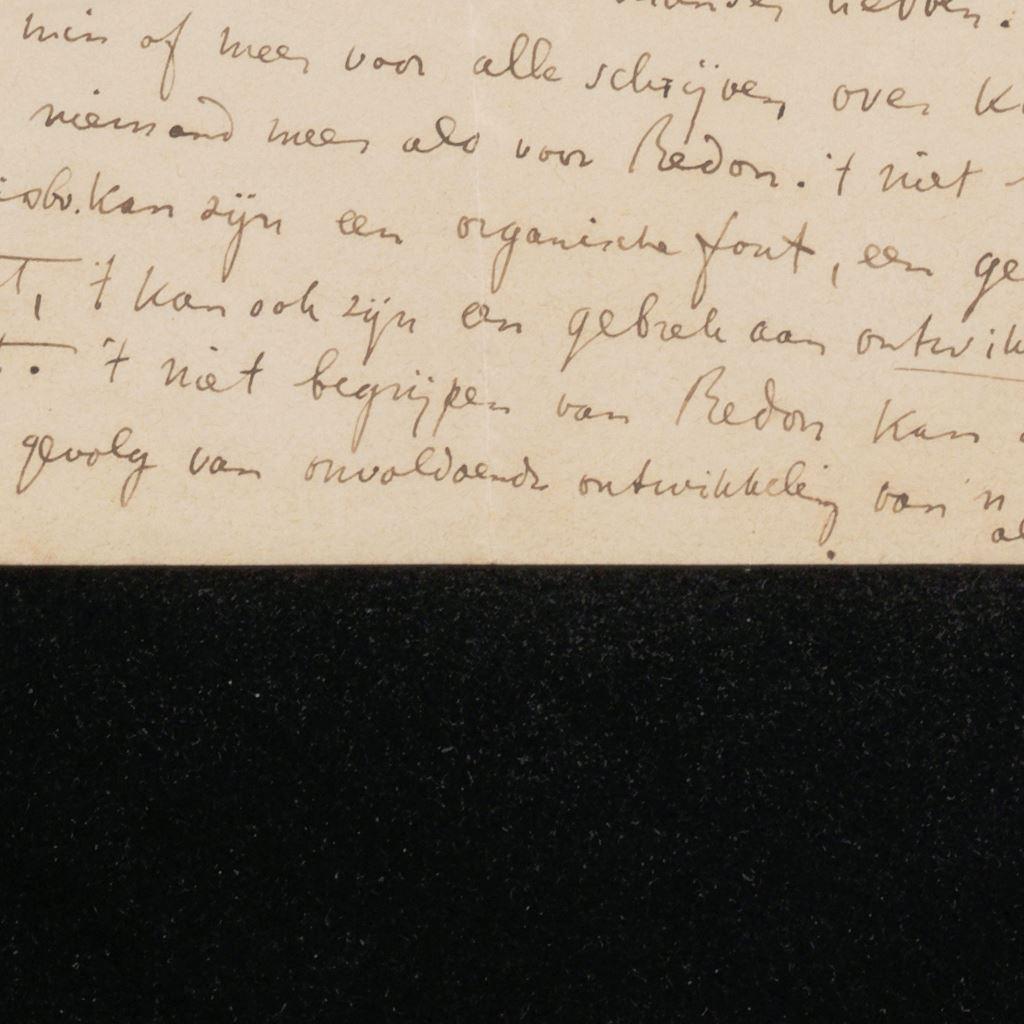 hebben.
min of meer voor alle schrijven over
niemand meer als voor Redon. 't niet
kan zijn een organische fout, een ge
t, 't kan ook zijn een gebrek aan ontwik
t. 't niet begrijpen van Redon kan
gevolg van onvoldoende ontwikkeling van 'n